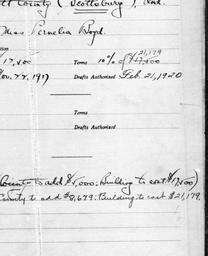 tt County (Scottsburg), Ind.
Miss Pernelia Boyd.
tion
21,179
17,500 Terms 10% of $17,500
Nov. 22, 1917 Drafts Authorized Feb 21, 1920
Terms
Drafts Authorized
Terms
Drafts Authorized
County to add $5,000: Building to cost $17,500)
County to add $8,679: Building to cost $21,179.